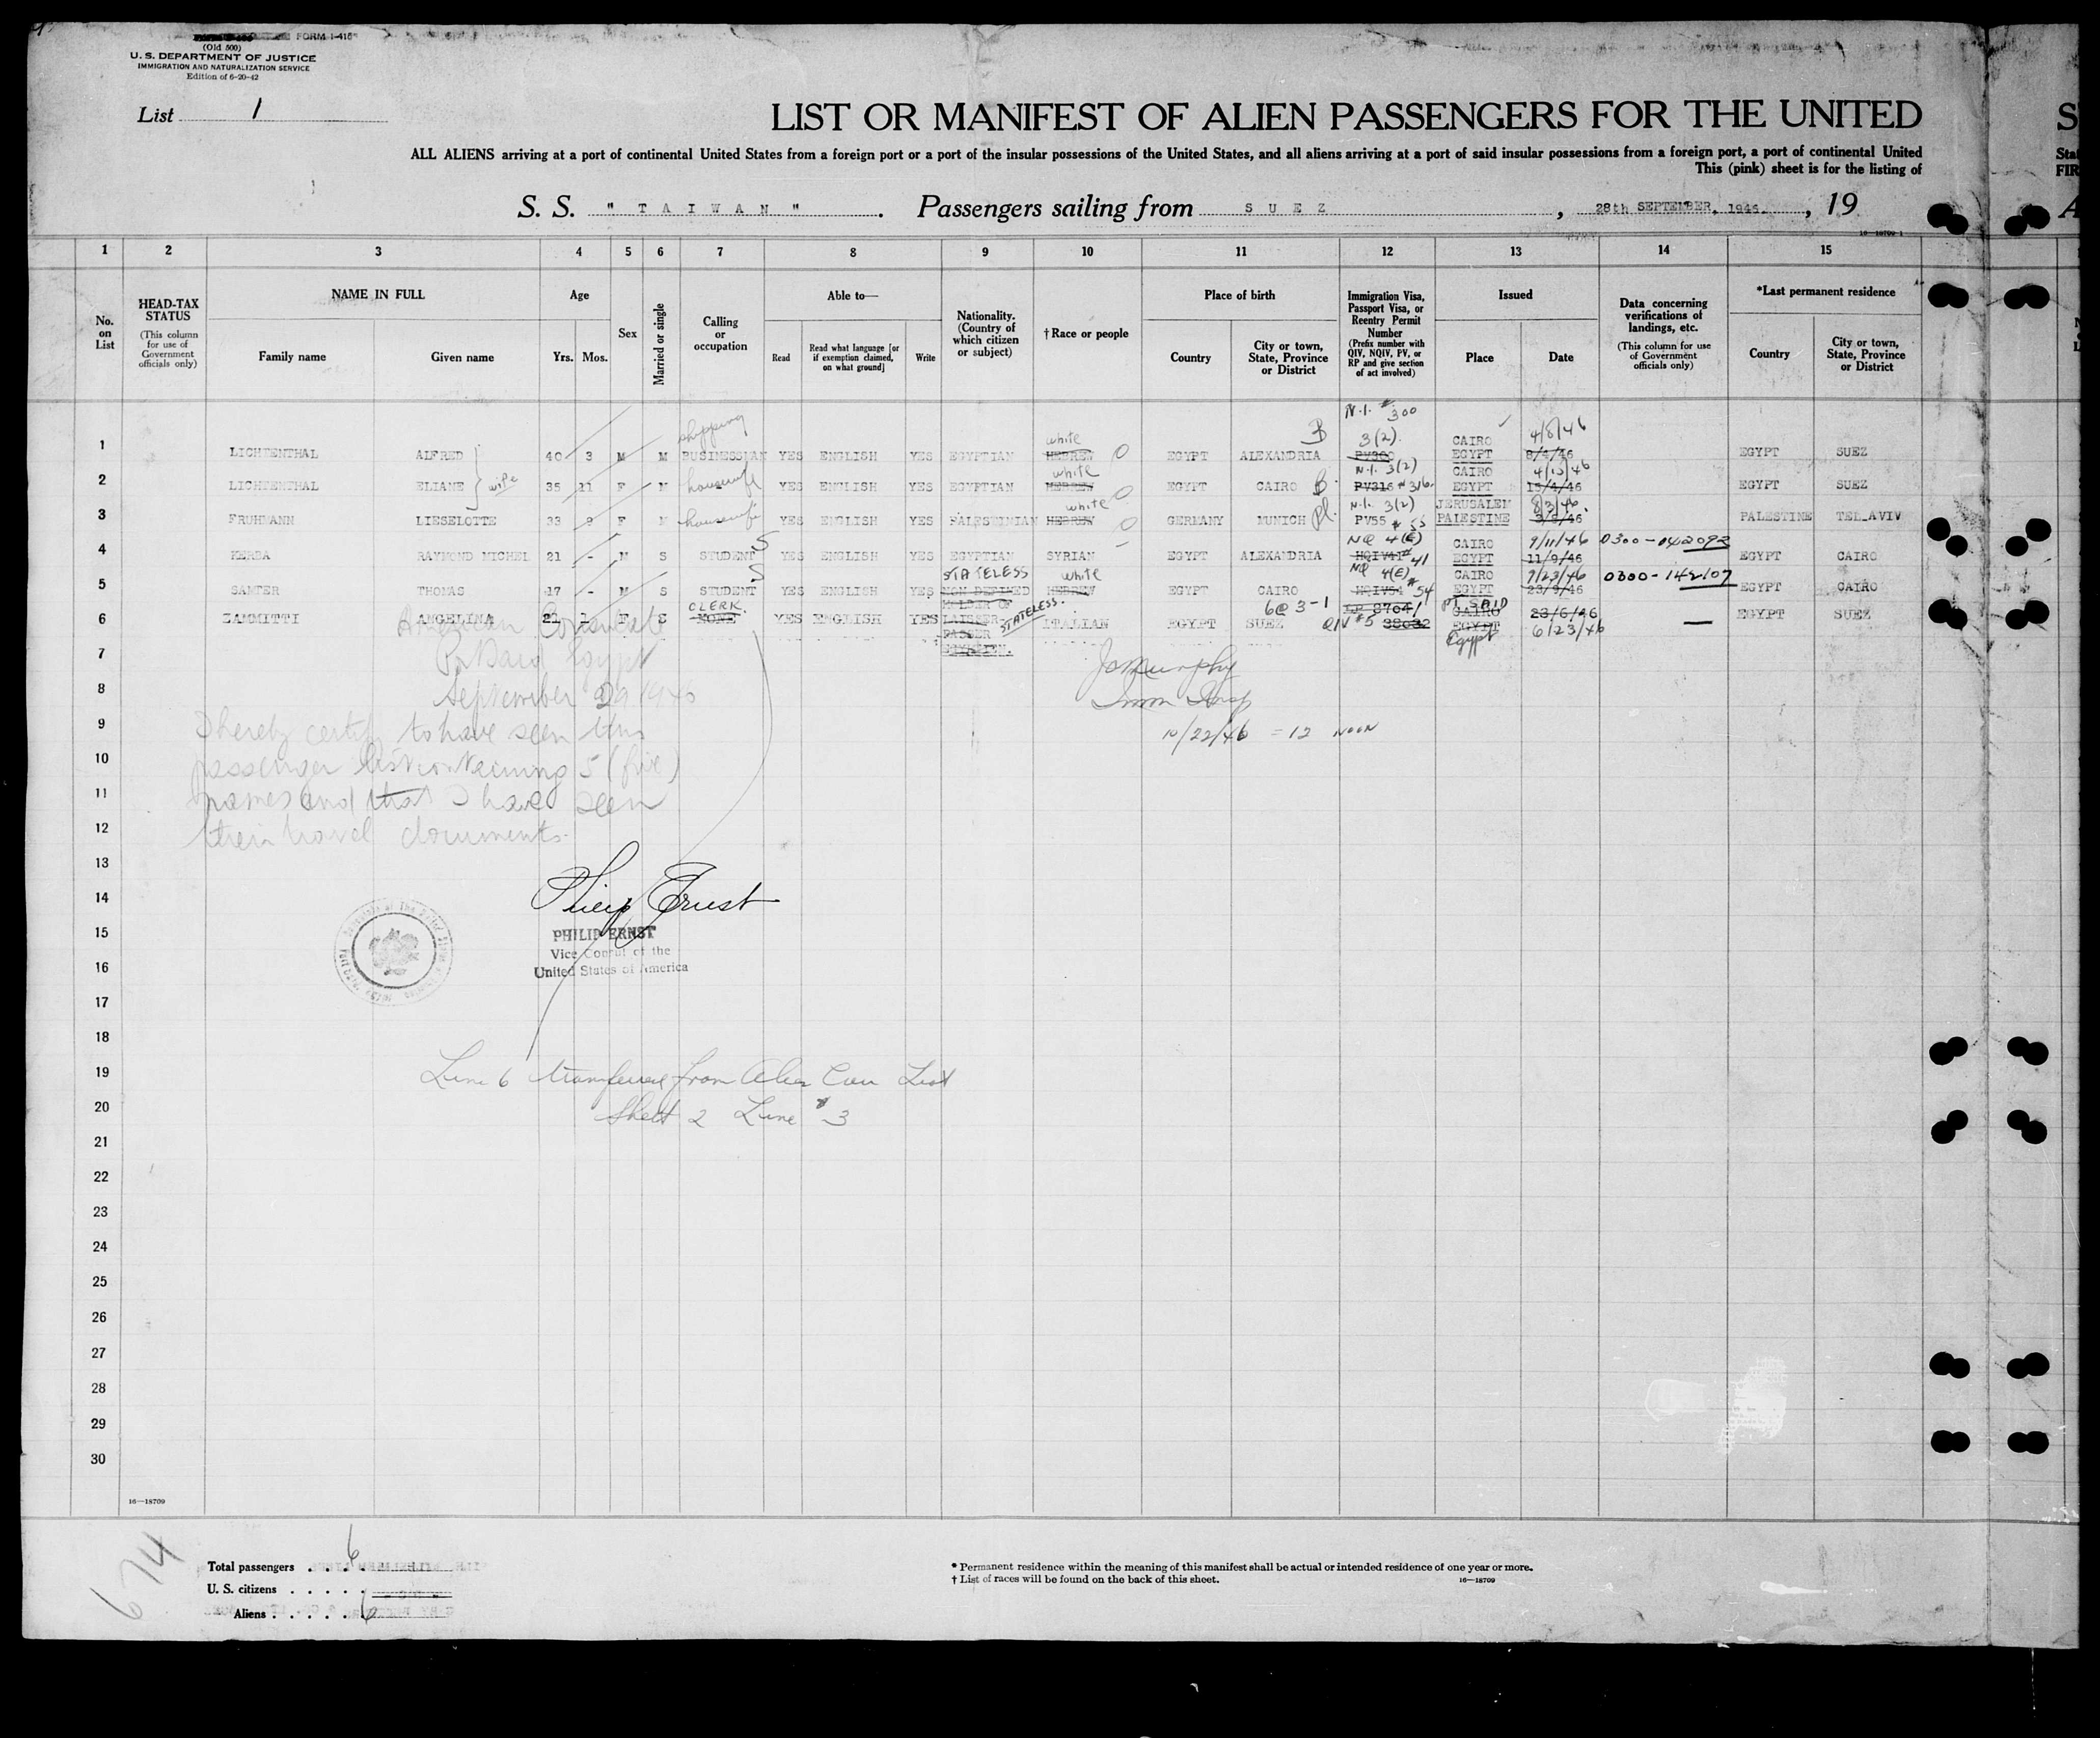 FORM I-415
(Old 500)
U. S. DEPARTMENT OF JUSTICE
IMMIGRATION AND NATURALIZATION SERVICE
Edition of 6-20-42
List 1
LIST OR MANIFEST OF ALIEN PASSENGERS FOR THE UNITED
ALL ALIENS arriving at a port of continental United States from a foreign port or a port of the insular possessions of the United States, and all aliens arriving at a port of said insular possessions from a foreign port, a port of continental United
This (pink) sheet is for the listing of
S. S. "TAIWAN". Passengers sailing from SUEZ, 28th SEPTEMBER, 1946., 19
16—18709-1
1 2 3 4 5 6 7 8 9 10 11 12 13 14 15
No. on List
HEAD-TAX STATUS
(This column for use of Government officials only)
NAME IN FULL
Family name
Given name
Age
Yrs. Mos.
Sex
Married or single
Calling or occupation
Able to—
Read
Read what language [or if exemption claimed, on what ground]
Write
Nationality. (Country of which citizen or subject)
† Race or people
Place of birth
Country
City or town, State, Province or District
Immigration Visa, Passport Visa, or Reentry Permit Number
(Prefix number with QIV, NQIV, PV, or RP and give section of act involved)
Issued
Place
Date
Data concerning verifications of landings, etc.
(This column for use of Government officials only)
*Last permanent residence
Country
City or town, State, Province or District
N.I. # 300
shopping white 3(2). CAIRO 4/8/46
1 LICHTENTHAL ALFRED 40 3 M M BUSINESSMAN YES ENGLISH YES EGYPTIAN HEBREW EGYPT ALEXANDRIA PV300 EGYPT 8/4/46 EGYPT SUEZ
wife white N.I. 3(2) CAIRO 4/15/46
2 LICHTENTHAL ELIANE 35 11 F M housewife YES ENGLISH YES EGYPTIAN HEBREW EGYPT CAIRO PV316 #316 EGYPT 15/4/46 EGYPT SUEZ
white N.I. 3(2) JERUSALEM
3 FRUHMANN LIESELOTTE 33 9 F M housewife YES ENGLISH YES PALESTINIAN HEBREW GERMANY MUNICH PV55 # 55 PALESTINE PALESTINE TEL_AVIV
S NQ 4(E) CAIRO 9/11/46 0300-142092
4 KERBA RAYMOND MICHEL 21 - M S STUDENT YES ENGLISH YES EGYPTIAN SYRIAN EGYPT ALEXANDRIA NQIV41 # 41 EGYPT 11/9/46 EGYPT CAIRO
S STATELESS white NQ 4(E) CAIRO 9/23/46 0300-142107
5 SAMTER THOMAS 17 - M S STUDENT YES ENGLISH YES NON DEFINED HEBREW EGYPT CAIRO NQIV54 # 54 EGYPT 23/9/46 EGYPT CAIRO
CLERK HOLDER OF STATELESS. 6@3-1 PT. SAID
6 ZAMMITTI ANGELINA 21 1 F S NONE YES ENGLISH YES LAISSER PASSER EGYPTIEN. ITALIAN EGYPT SUEZ QIV #5 38032 CAIRO EGYPT 23/6/46 — EGYPT SUEZ
Egypt 6/23/46
American Consulate
Port Said Egypt
September 29 1946
I hereby certify to have seen this
passenger list containing 5 (five)
names and that I have seen
their travel documents.
J Murphy
Imm Insp
10/22/46 = 12 NOON
7
8
9
10
11
12
13
14
15
16
17
18
19
20
21
22
23
24
25
26
27
28
29
30
Philip Ernst
PHILIP ERNST
Vice Consul of the
United States of America
Line 6 transferred from Alien Crew List
Sheet 2 Line # 3
16—18709
674
Total passengers . . . . 6
U. S. citizens . . . . .
Aliens . . . . . . 6
* Permanent residence within the meaning of this manifest shall be actual or intended residence of one year or more.
† List of races will be found on the back of this sheet.
16—18709